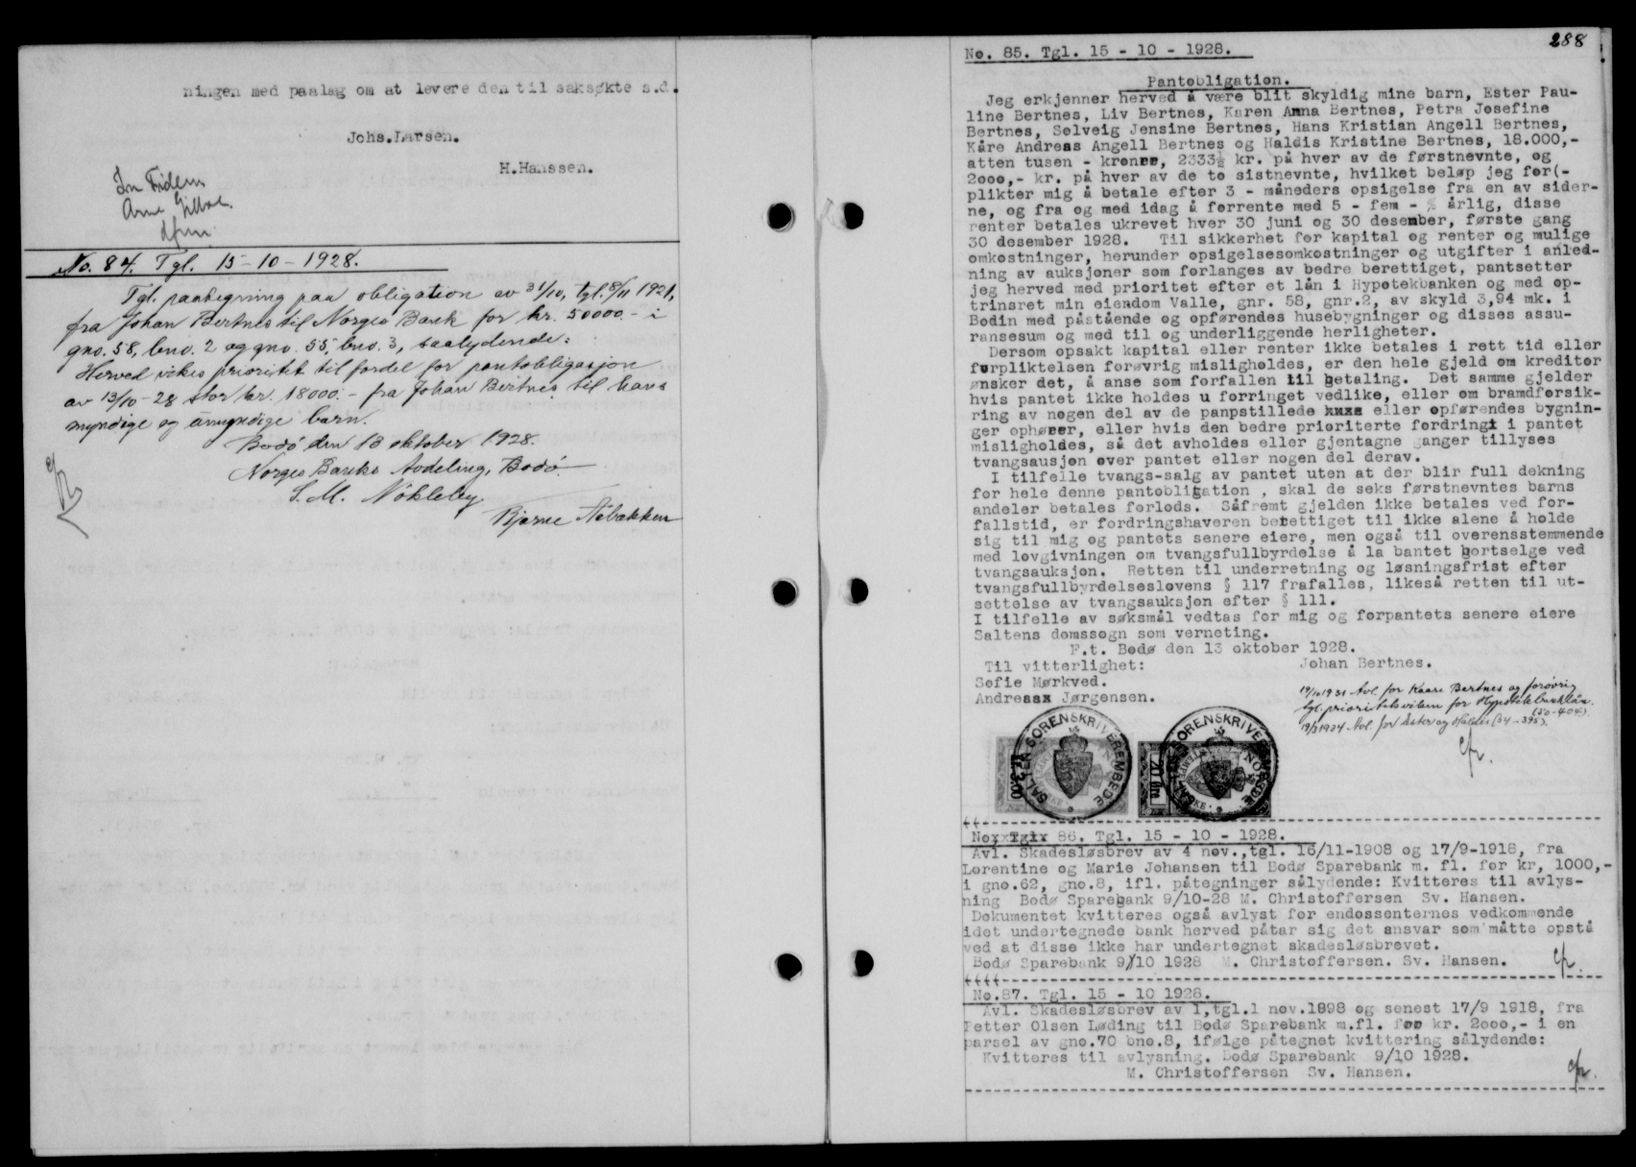 ningen med paalag om at levere den til saksøkte s.d.
Johs.Larsen.
H.Hanssen.
In Fidem
Arne
dfm.
No. 84. Tgl. 15-10-1928.
Tgl. paategning paa obligation av 31/10, tgl. 8/11 1921,
fra Johan Bertnes til Norges Bank for kr. 50000.- i
gno. 58, bno. 2 og gno. 55, bno. 3, saalydende:
Herved vikes prioritet til fordel for pantobligasjon
av 13/10-28 stor kr. 18000.- fra Johan Bertnes til hans
myndige og umyndige barn.
Bodö den 13 oktober 1928.
Norges Banks Avdeling, Bodö
S.M. Nökleby
Bjarne Aabakken
288
No. 85. Tgl. 15 - 10 - 1928.
Pantobligation.
Jeg erkjenner herved å være blit skyldig mine barn, Ester Pau-
line Bertnes, Liv Bertnes, Karen Anna Bertnes, Petra Josefine
Bertnes, Solveig Jensine Bertnes, Hans Kristian Angell Bertnes,
Kåre Andreas Angell Bertnes og Haldis Kristine Bertnes, 18.000,-
atten tusen - kroner, 2333⅓ kr. på hver av de førstnevnte, og
2000,- kr. på hver av de to sistnevnte, hvilket beløp jeg for(-
plikter mig å betale efter 3 - måneders opsigelse fra en av sider-
ne, og fra og med idag å forrente med 5 - fem - % årlig, disse
renter betales ukrevet hver 30 juni og 30 desember, første gang
30 desember 1928. Til sikkerhet for kapital og renter og mulige
omkostninger, herunder opsigelsesomkostninger og utgifter i anled-
ning av auksjoner som forlanges av bedre berettiget, pantsetter
jeg herved med prioritet efter et lån i Hypotekbanken og med op-
trinsret min eiendom Valle, gnr. 58, gnr.2, av skyld 3,94 mk. i
Bodin med påstående og opførendes husebygninger og disses assu-
ransesum og med til og underliggende herligheter.
Dersom opsakt kapital eller renter ikke betales i rett tid eller
forpliktelsen forøvrig misligholdes, er den hele gjeld om kreditor
ønsker det, å anse som forfallen til betaling. Det samme gjelder
hvis pantet ikke holdes u forringet vedlike, eller om bramdforsik-
ring av nogen del av de panpstillede eller opførendes bygnin-
ger ophører, eller hvis den bedre prioriterte fordringt i pantet
misligholdes, så det avholdes eller gjentagne ganger tillyses
tvangsausjon over pantet eller nogen del derav.
I tilfelle tvangs-salg av pantet uten at der blir full dekning
for hele denne pantobligation , skal de seks førstnevntes barns
andeler betales forlods. Såfremt gjelden ikke betales ved for-
fallstid, er fordringshaveren berettiget til ikke alene å holde
sig til mig og pantets senere eiere, men også til overensstemmende
med lovgivningen om tvangsfullbyrdelse å la bantet bortselge ved
tvangsauksjon. Retten til underretning og løsningsfrist efter
tvangsfullbyrdelseslovens § 117 frafalles, likeså retten til ut-
settelse av tvangsauksjon efter § 111.
I tilfelle av søksmål vedtas for mig og forpantets senere eiere
Saltens domssogn som verneting.
F.t. Bodø den 13 oktober 1928.
Til vitterlighet: Johan Bertnes.
Sofie Mørkved.
Andreasx Jørgensen.
19/10 1931 Avl. for Kaare Bertnes og forøvrig
tgl. prioritetsvikem for Hypotekbanklån.
(30-404)
19/3 1934. Avl. for Ester og Haldis (34-395).
SALTEN SORENSKRIVEREMBEDE
SALTEN SORENSKRIVEREMBEDE
Kr. 3.00
20 Øre
NORGE
Noxxxgix 86. Tgl. 15 - 10 - 1928.
Avl. Skadesløsbrev av 4 nov.,tgl. 16/11-1908 og 17/9-1918, fra
Lorentine og Marie Johansen til Bodø Sparebank m. fl. for kr, 1000,-
i gno.62, gno.8, ifl. påtegninger sålydende: Kvitteres til avlys-
ning Bodø Sparebank 9/10-28 M. Christoffersen Sv. Hansen.
Dokumentet kvitteres også avlyst for endossenternes vedkommende
idet undertegnede bank herved påtar sig det ansvar som måtte opstå
ved at disse ikke har undertegnet skadesløsbrevet.
Bodø Sparebank 9/10 1928 M. Christoffersen. Sv. Hansen.
No.87. Tgl. 15 - 10 1928.
Avl. Skadesløsbrev av 1,tgl.1 nov.1898 og senest 17/9 1918, fra
Petter Olsen Løding til Bodø Sparebank m.fl. for kr. 2000,- i en
parsel av gno.70 bno.8, ifølge påtegnet kvittering sålydende:
Kvitteres til avlysning. Bodø Sparebank 9/10 1928.
M. Christoffersen Sv. Hansen.